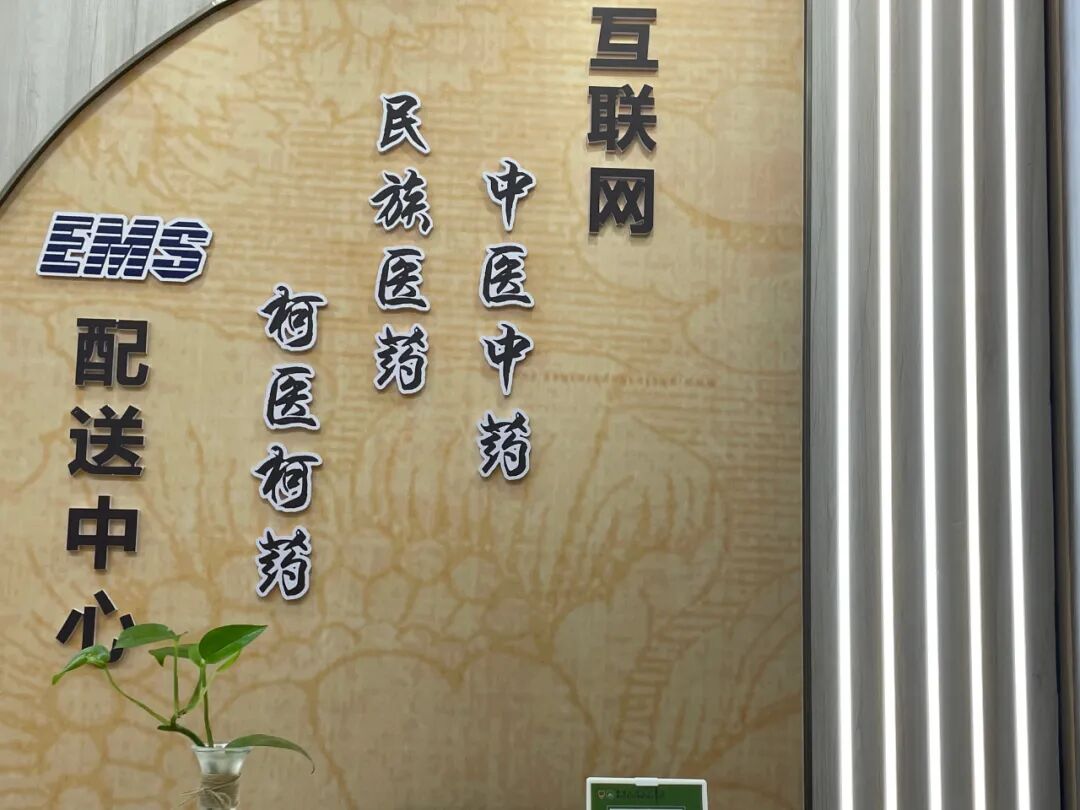 互联网
中医中药
民族医药
柯医柯药
EMS
配送中心